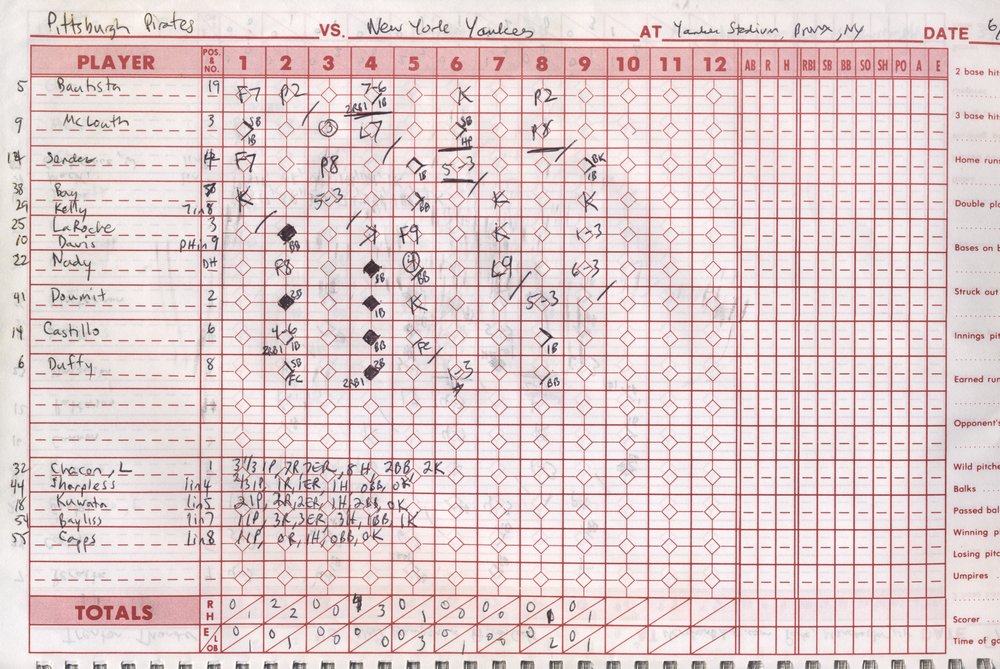 Pittsburgh Pirates VS. New York Yankees AT Yankee Stadium, Bronx, NY DATE 6/
PLAYER POS. & NO. 1 2 3 4 5 6 7 8 9 10 11 12 AB R H RBI SB BB SO SH PO A E
2 base hit
5 Bautista 19 F7 P2 7-6 2RBI 1B K P2
3 base hit
9 McLouth 3 SB 1B 3 L7 SB HP P8
Home runs
F7 P8 1B 5-3 BK 1B
Double pla
38 Bay K 5-3 BB K K
29 Kelly 7in8
25 LaRoche 3 BB K F9 K 1-3
10 Davis PHin9
Bases on b
22 Nady DH F8 SB 4 BB L9 6-3
Struck out
41 Doumit 2 2B 1B K 5-3
Innings pit
14 Castillo 6 4-6 2RBI 1B BB FC 1B
Earned run
6 Duffy 8 SB FC 2RBI 2B 1-3 BB
Opponent's
32 Chacon, L 1 3 1/3 IP, 7R, 7ER, 8H, 2BB, 2K
Wild pitche
44 Sharpless 1in4 2/3 IP, 1R, 1ER 1H 0BB, 0K
Balks
18 Kuwata 1in5 2IP, 2R, 2ER, 1H 2BB, 0K
Passed bal
54 Bayliss 1in7 1IP, 3R, 3ER, 3H, 1BB, 1K
Winning pi
55 Capps 1in8 1IP, 0R, 1H, 0BB, 0K
Losing pitc
Umpires
TOTALS R H 0 1 2 2 0 0 4 3 0 1 0 0 0 0 0 1 0 1
Scorer
E LOB 0 1 0 1 0 0 0 0 0 3 0 1 0 0 0 2 0 1
Time of ga